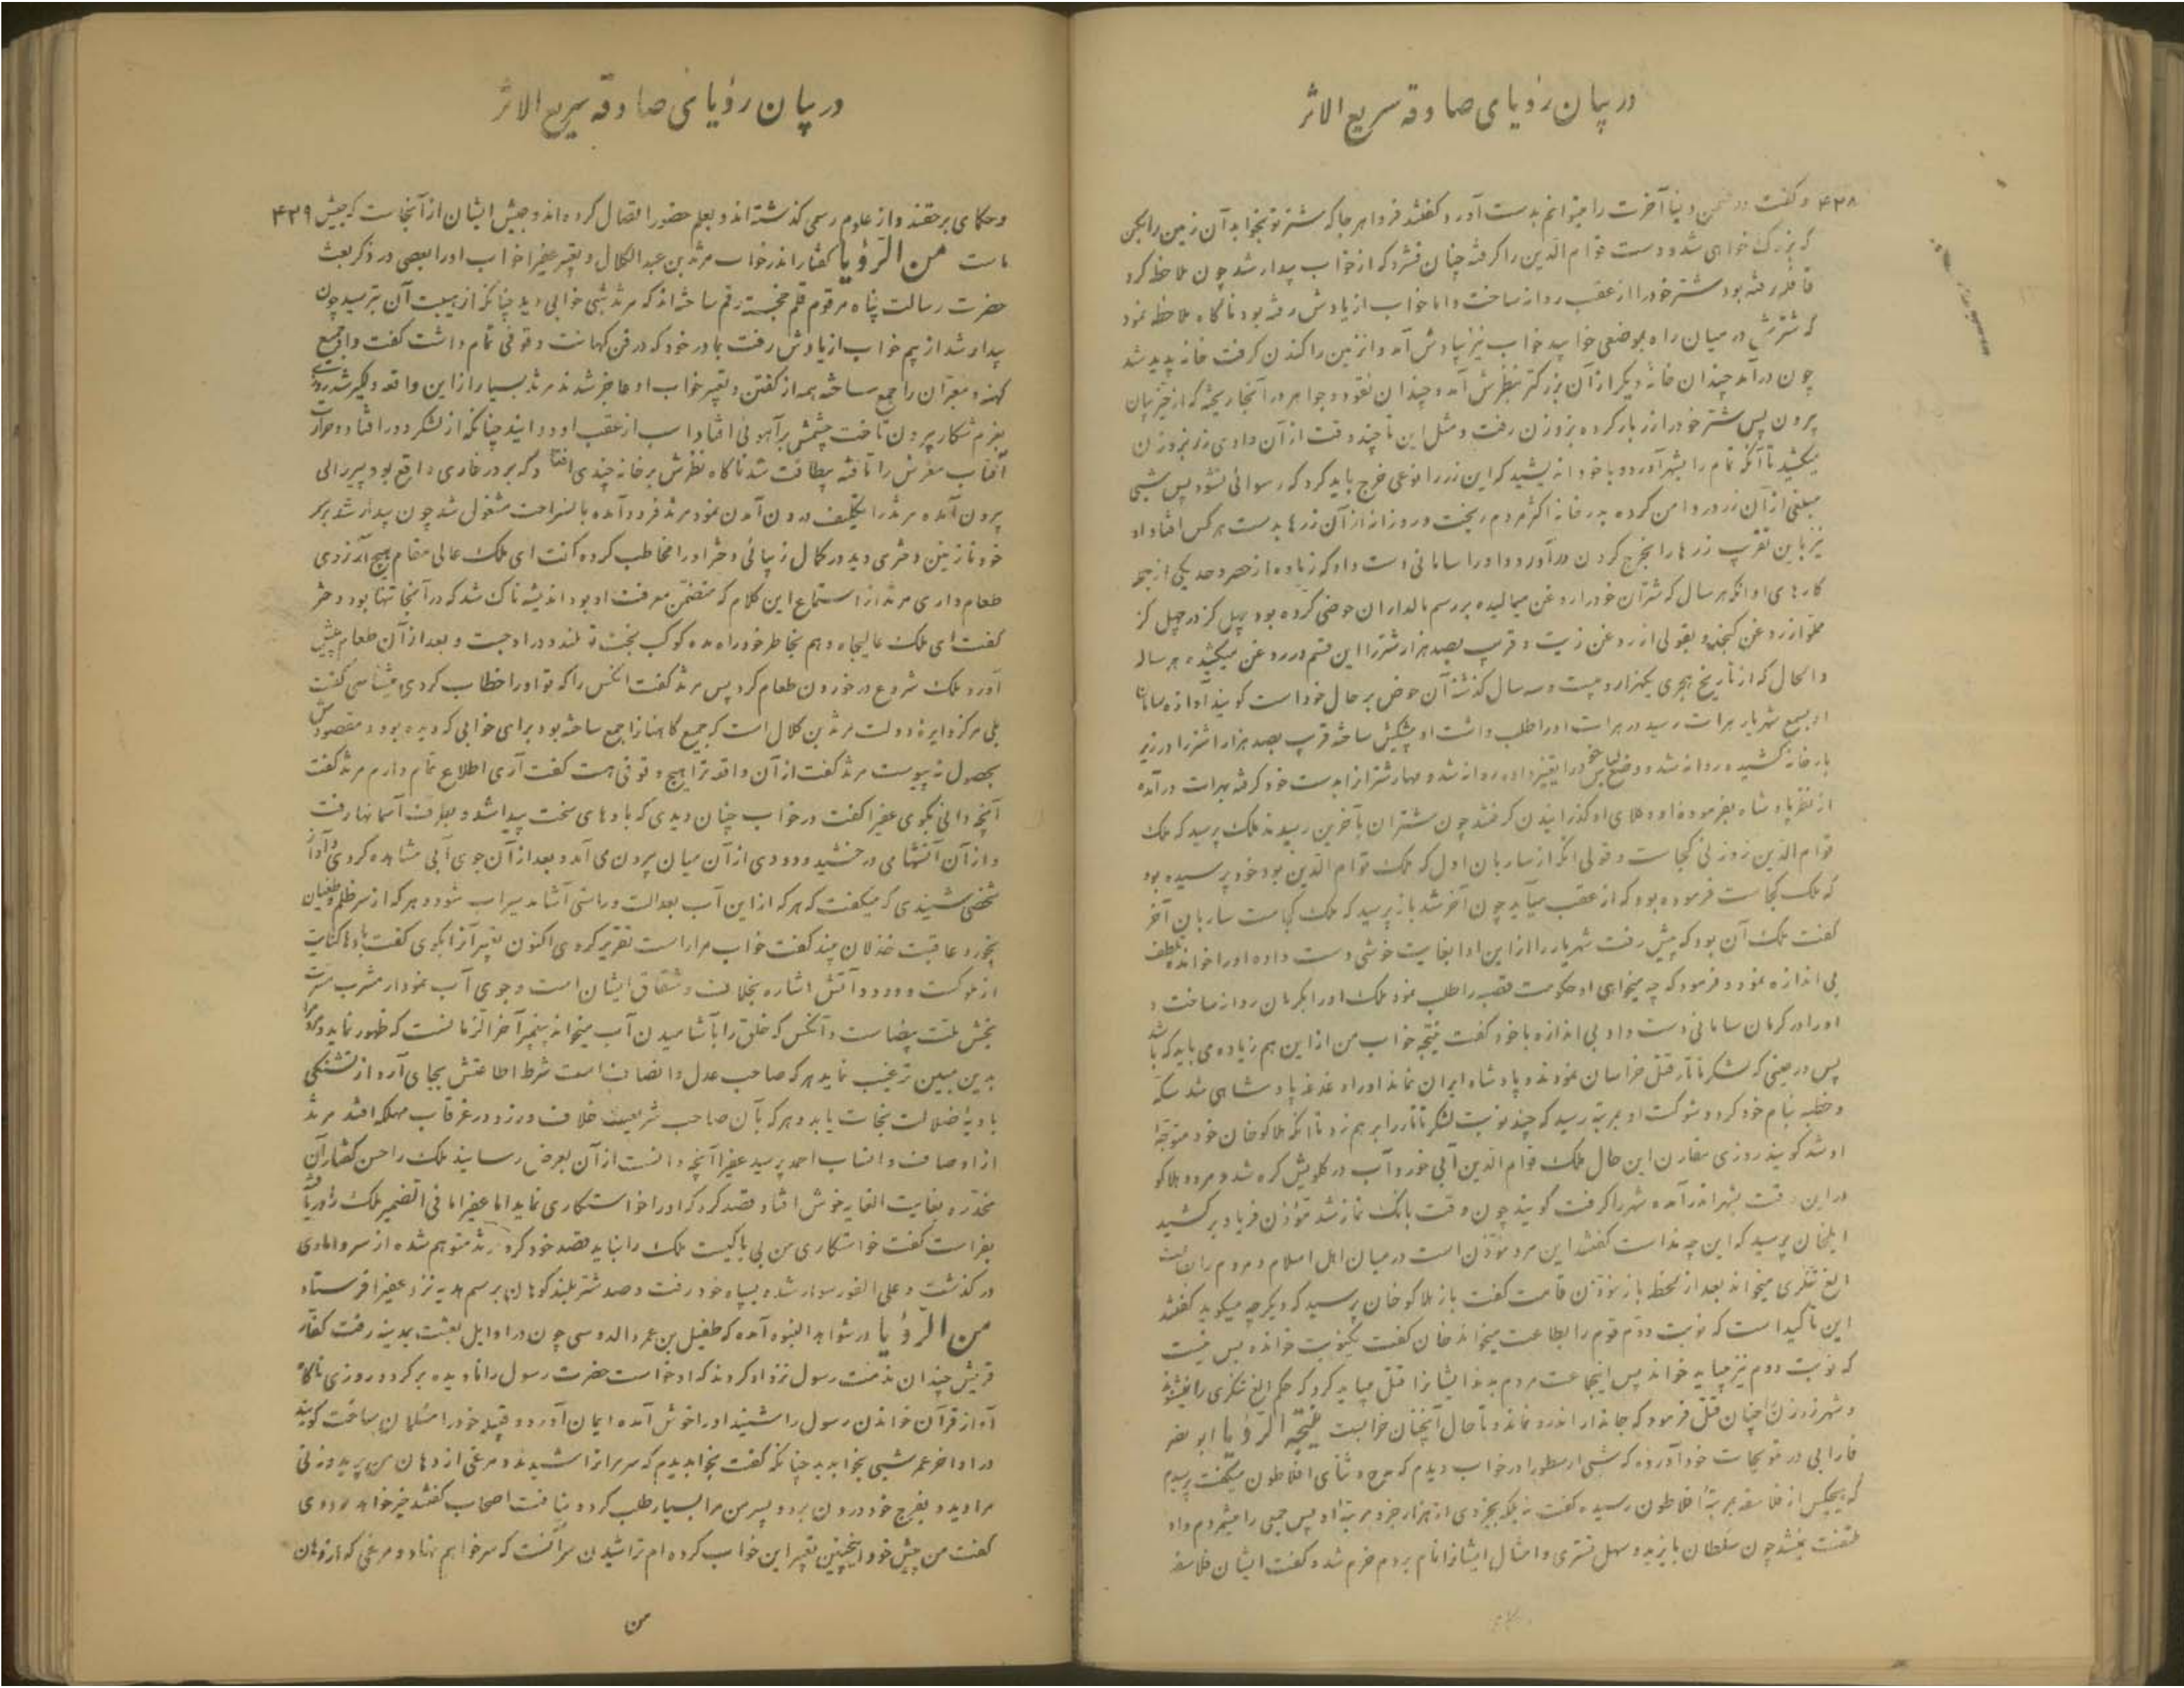 در بیان رؤیای صادقه سریع الاثر
۴۳۸ و گفت در ضمن دنیا آخرت را میتوانم بدست آورد گفتند فردا هر جا که شتر تو بخوابد آن زمین را بکن
که بزرک خواهی شد و دست قوام الدین را گرفته چنان فشرد که از خواب بیدار شد چون ملاحظه کرد
قافله رفته بود شتر خود را از عقب روانه ساخت و اما خواب از یادش رفته بود ناگاه ملاحظه نمود
که شترش در میان راه بموضعی خوابید خواب نیز بیادش آمد و انزمین را کندن گرفت خانه پدید شد
چون درآمد چندان خانهٔ دیگر از آن بزرگتر بنظرش آمد و چندان نقود و جواهر در آنجا ریخته که از حیز بیان
برون پس شتر خود را زر بار کرده بزوزن رفت و مثل این تا چند وقت از آن وادی زر بزوزن
میکشید تا آنکه تمام را بشهر آورد و با خود اندیشید که این زر را بنوعی خرج باید کرد که رسوائی نشود پس شبی
مبلغی از آن زر در دامن کرده بدر خانه اکثر مردم ریخت و روز از آن زرها بدست هر کس افتاد او
نیز باین تقریب زرها را بخرج کردن درآورد و او را سامانی دست داد که زیاده از حصر و حد یکی از جمله
کارهای او انکه هر سال که شتران خود را روغن میمالیده برسم مالداران حوضی کرده بود چهل گز در چهل گز
مملو از روغن کنجد و بقولی از روغن زیت و قریب بصد هزار شتر را این قسم در روغن میکشیده هر ساله
و الحال که از تاریخ هجری یکهزار و بیست و سه سال گذشته آن حوض بر حال خود است گویند آوازه سامان
او بسمع شهریار هرات رسید در هرات او را طلب داشت او پیشکش ساخته قریب بصد هزار شتر را در زیر
بار خانه کشیده روانه شد و وضع لباس خود را تغییر داده روانه شد و مهار شتر از بدست خود گرفته بهرات درآمد
از نظر پادشاه بفرموده او و کلای او گذرانیدن گرفتند چون شتران بآخرین رسیدند ملک پرسید که ملک
قوام الدین زوزنی کجاست و قولی انکه از ساربان اول که ملک قوام الدین بود خود پرسیده بود
که ملک کجاست فرموده بود که از عقب میآید چون آخر شد باز پرسید که ملک کجاست ساربان آخر
گفت ملک آن بود که پیش رفت شهریار را از این ادا بغایت خوشی دست داده او را خوانده بلطف
بی اندازه نمود و فرمود که چه میخواهی او حکومت قصبه را طلب نمود ملک او را بکرمان روانه ساخت و
او را در کرمان سامانی دست داد بی اندازه با خود گفت نتیجه خواب من از این هم زیاده می باید که باشد
پس در حینی که لشکر تاتار قتل خراسان نمودند و پادشاه ایران نماند او را دغدغه پادشاهی شد سکه
و خطبه بنام خود کرد و شوکت او بمرتبه رسید که چند نوبت لشکر تاتار را بر هم زد تا انکه هلاکوخان خود متوجه
او شد گویند روزی مقارن این حال ملک قوام الدین آبی خورد و آب در گلویش گره شد و مرد و هلاکو
در این وقت بشهر اندر آمده شهر را گرفت گویند چون وقت بانک نماز شد مؤذن فریاد برکشید
ایلخان پرسید که این چه نداست گفتند این مرد مؤذن است در میان اهل اسلام و مردم را بطاعت
الغ تنگری میخواند بعد از لحظه باز مؤذن قامت گفت باز هلاکوخان پرسید که دیگر چه میگوید گفتند
این تاکید است که نوبت دوم قوم را بطاعت میخواند خان گفت یکنوبت خوانده بس نیست
که نوبت دوم نیز میباید خواند پس اینجماعت مردم بدند ایشانرا قتل میباید کرد که حکم الغ تنگری را نمیشنوند
و شهر زوزن را چنان قتل فرمود که جاندار اندرو نماند و تا حال آنچنان خرابست نتیجة الرؤیا ابو نصر
فارابی در خود آورده که شبی ارسطو را در خواب دیدم که مدح و ثنای افلاطون میگفت پرسیدم
که هیچکس از فلاسفه بمرتبه افلاطون رسیده گفت نه بلکه بجزوی از هزار جزو مرتبه او پس جمعی را میشمردم و او
ملتفت نمیشد چون سلطان بایزید و سهل تستری و امثال ایشانرا نام بردم خرم شد و گفت ایشان فلاسفه
در بیان رؤیای صادقه سریع الاثر
و حکمای بر حقند و از علوم رسمی گذشته اند و بعلم حضور اتصال کرده اند و جیش ایشان از آنجاست که جیش ۴۳۹
ماست من الرؤیا گفتار اندر خواب مرثد بن عبد الکلال و تعبیر عفیرا خواب او را بعضی در ذکر بعثت
حضرت رسالت پناه مرقوم قلم خجسته رقم ساخته اند که مرثد شبی خوابی دید چنانکه از هیبت آن بترسید چون
بیدار شد از بیم خواب از یادش رفت بمادر خود که در فن کهانت وقوفی تمام داشت گفت و او جمیع
کهنه و معبران را جمع ساخته همه از گفتن و تعبیر خواب او عاجز شدند مرثد بسیار از این واقعه دلگیر شد روزی
بعزم شکار برون تاخت چشمش بر آهوئی افتاد اسب از عقب او دوانید چنانکه از لشکر دور افتاد و حرارت
آفتاب مغزش را تافته بیطاقت شد ناگاه نظرش بر خانه چندی افتاد که بر در غاری واقع بود پیرزالی
برون آمده مرثد را تکلیف درون آمدن نمود مرثد فرود آمده باستراحت مشغول شد چون بیدار شد بر سر
خود نازنین دختری دید در کمال زیبائی دختر او را مخاطب کرده گفت ای ملک عالی مقام هیچ آرزوی
طعام داری مرثد از استماع این کلام که متضمن معرفت او بود اندیشه ناک شد که در آنجا تنها بود دختر
گفت ای ملک عالیجاه وهم بخاطر خود راه مده کوکب بختت بلند و در اوجست و بعد از آن طعام پیش
آورد ملک شروع در خوردن طعام کرد پس مرثد گفت انکس را که تو او را خطاب کردی میشناسی گفت
بلی مرکز دایره دولت مرثد بن کلال است که جمیع کاهنانرا جمع ساخته بود برای خوابی که دیده بود و مقصودش
بحصول نه پیوست مرثد گفت از آن واقعه ترا هیچ وقوفی هست گفت آری اطلاع تمام دارم مرثد گفت
آنچه دانی بگوی عفیرا گفت در خواب چنان دیدی که بادهای سخت پیدا شد و بطرف آسمانها رفت
و از آن آتشها می درخشید و دودی از آن میان برون می آمد و بعد از آن جوی آبی مشاهده کردی و آواز
شخصی شنیدی که میگفت که هر که از این آب بعدالت و راستی آشامد سیراب شود و هر که از سر ظلم و طغیان
بخورد عاقبت خذلان بیند گفت خواب مرا راست تقریر کردی اکنون تعبیر آنرا بگوی گفت بادها کنایت
از ملوکست و دود و آتش اشاره بخلاف و شقاق ایشان است و جوی آب نمودار مشرب مسرت
بخش ملت بیضاست و آنکس که خلق را بآشامیدن آب میخواند پیغمبر آخر الزمانست که ظهور نماید و مردم را
بدین مبین ترغیب نماید هر که صاحب عدل و انصاف است شرط اطاعتش بجای آرد از تشنگی
بادیه ضلالت نجات یابد و هر که بآن صاحب شریعت خلاف ورزد در غرقاب مهلکه افتد مرثد
از اوصاف و انساب احمد پرسید عفیرا آنچه دانست از آن بعرض رسانید ملک را حسن گفتار آن
مخدره بغایت الغایه خوش افتاد قصد کرد که او را خواستکاری نماید اما عفیرا ما فی الضمیر ملک را دریافته
بفراست گفت خواستکاری من بی باکیست ملک را نباید قصد خود کرد مرثد متوهم شده از سر دامادی
در گذشت و علی الفور سوار شده بسپاه خود رفت و صد شتر بلند کوهان برسم هدیه نزد عفیرا فرستاد
من الرؤیا در شواهد النبوه آمده که طفیل بن عمر والدوسی چون در اوایل بعثت بمدینه رفت کفار
قریش چندان مذمت رسول نزد او کردند که او خواست حضرت رسول را نادیده برگردد روزی ناگاه
آواز قرآن خواندن رسول را شنید او را خوش آمده ایمان آورد و قبیله خود را مسلمان ساخت گویند
در اواخر عمر شبی بخوابدید چنانکه گفت بخوابدیدم که سر مرا تراشیدند و مرغی از دهان من پرید و زنی
مرا دید و بفرج خود درون برد و پسر من مرا بسیار طلب کرد و نیافت اصحاب گفتند خیر خواهد بود وی
گفت من پیش خود اینچنین تعبیر این خواب کرده ام تراشیدن سر آنست که سر خواهم نهاد و مرغی که از دهان
من